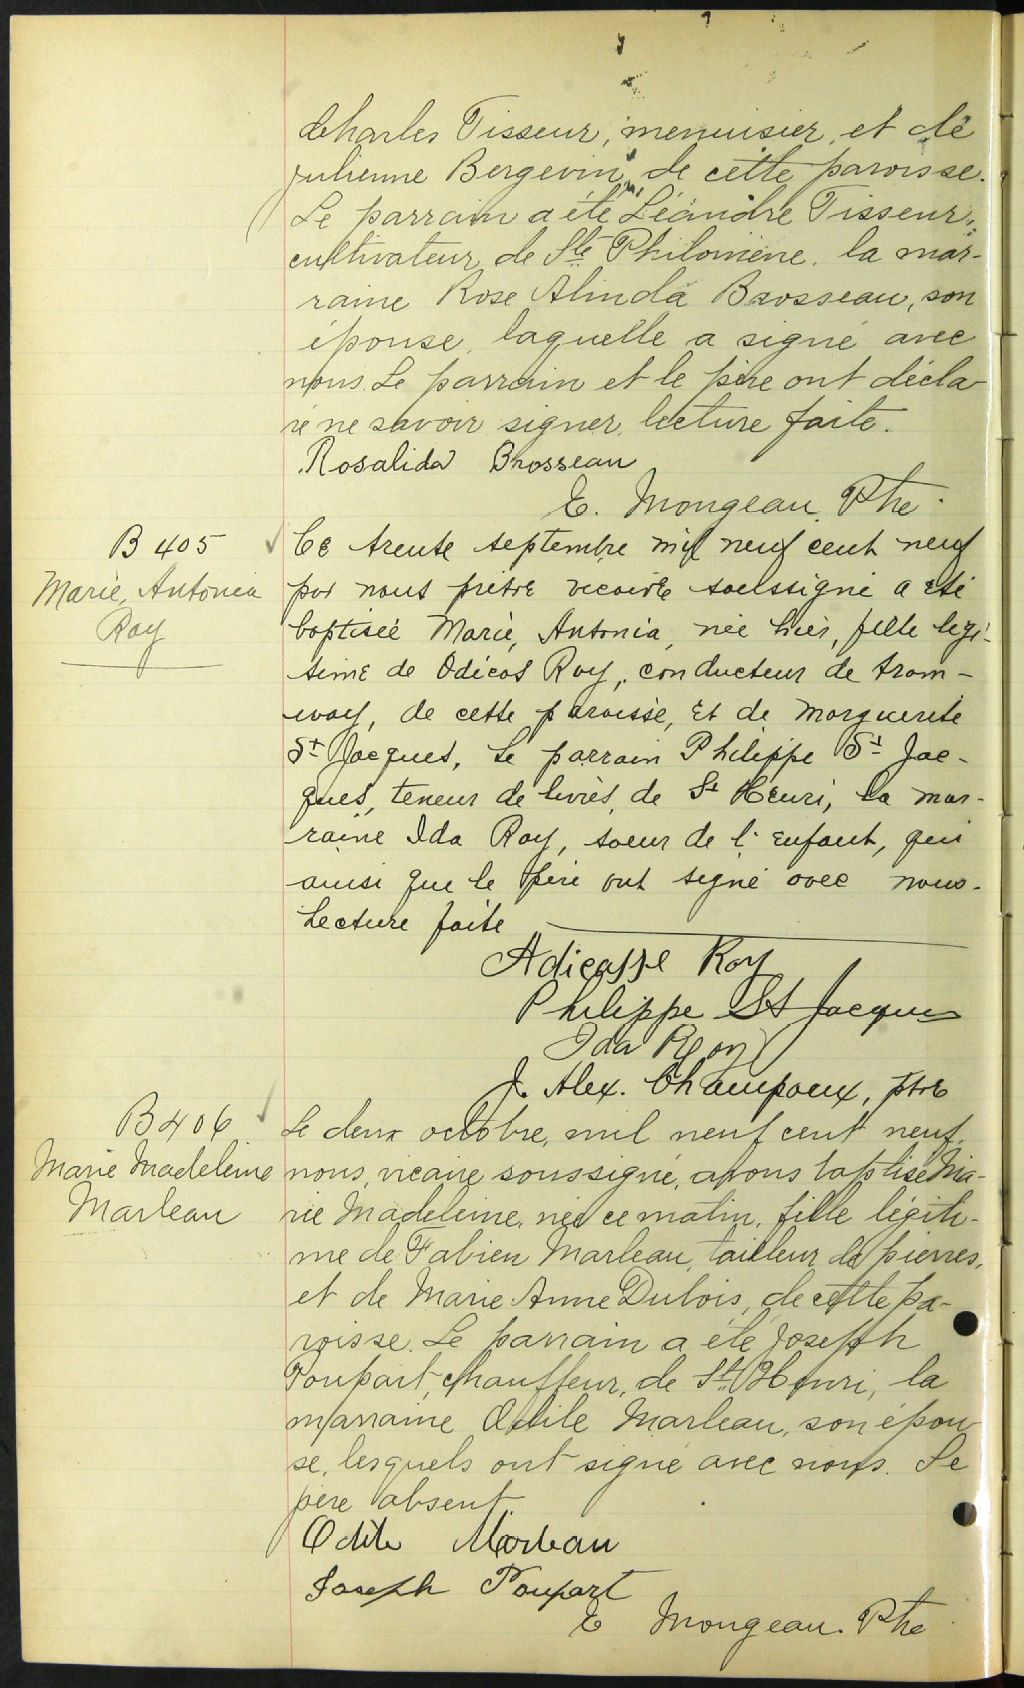 de Charles Tisseur, menuisier, et de
Julienne Bergevin, de cette paroisse.
Le parrain a été Léandre Tisseur,
cultivateur, de Ste Philomène, la mar-
raine Rose Alinda Brosseau, son
épouse, laquelle a signé avec
nous. Le parrain et le père ont décla-
ré ne savoir signer, lecture faite.
Rosalida Brosseau
E. Mongeau Ptre
B 405
Marie, Antonia
Roy
Ce trente septembre mil neuf cent neuf
par nous prêtre vicaire soussigné a été
baptisée Marie, Antonia, née hier, fille légi-
time de Odicas Roy, conducteur de tram-
way, de cette paroisse, et de Marguerite
St Jacques, Le parrain Philippe St Jac-
ques, teneur de livres, de St Henri, la mar-
raine Ida Roy, soeur de l'enfant, qui
ainsi que le père ont signé avec nous.
Lecture faite
Adicasse Roy
Philippe St Jacques
Ida Roy
J. Alex. Champoux, ptre
B 406
Marie Madeleine
Marleau
Le deux octobre, mil neuf cent neuf,
nous, vicaire soussigné, avons baptisé Ma-
rie Madeleine, née ce matin, fille légiti-
me de Fabien Marleau, tailleur de pierres,
et de Marie Anne Dubois, de cette pa-
roisse. Le parrain a été Joseph
Poupart, chauffeur, de St Henri, la
marraine Odile Marleau, son épou-
se, lesquels ont signé avec nous. Le
père absent.
Odile Marleau
Joseph Poupart
E Mongeau. Ptre